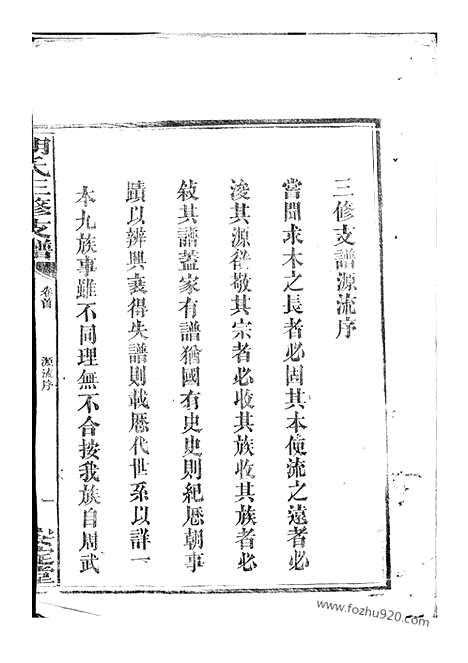 三修支譜源流序
嘗聞求木之長者必固其本使流之遠者必
浚其源從敬其宗者必收其族收其族者必
敍其譜蓋家有譜猶國有史史則紀歷朝事
蹟以辨興衰得失譜則載歷代世系以詳一
本九族事雖不同理無不合按我族自周武
胡氏三修支譜
卷首
源流序
一
www.fozhu920.com